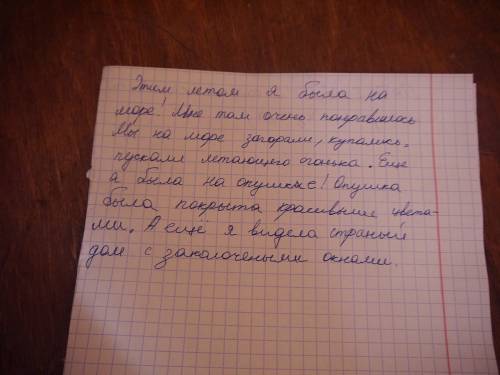 Этим летом я была на
море! Мне там очень понравилось
Мы на море загорали, купались,
пускали летающего огонька. Еще
я была на опушке! Опушка
была покрыта красивыми цвета-
ми. А ещё я видела страный
дом с заколочеными окнами.